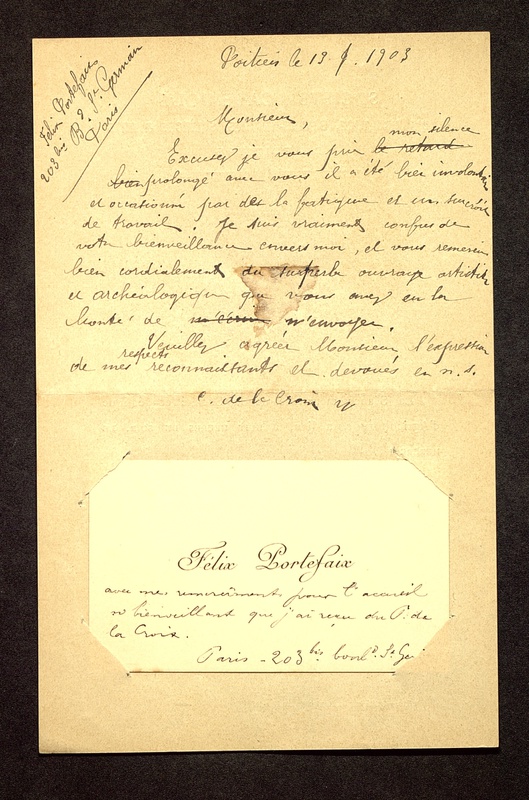 Félix Portefaix
203 bis Bd St Germain
Paris
Poitiers le 13 f. 1903
Monsieur,
mon silence
Excusez je vous prie le retard
bien prolongé avec vous il a été bien involontaire
et occasionné par de la fatigue et un surcroit
de travail. Je suis vraiment confus de
votre bienveillance envers moi, et vous remercie
bien cordialement du superbe ouvrage artistique
et archéologique que vous avez eu la
bonté de m'envoyer.
Veuillez agréer Monsieur l'expression
respects
de mes reconnaissants et dévoués en n. s.
C. de la Croix
Félix Portefaix
avec mes remerciements pour l'accueil
si bienveillant que j'ai reçu du P. de
la Croix.
Paris - 203 bis bould. St Ger